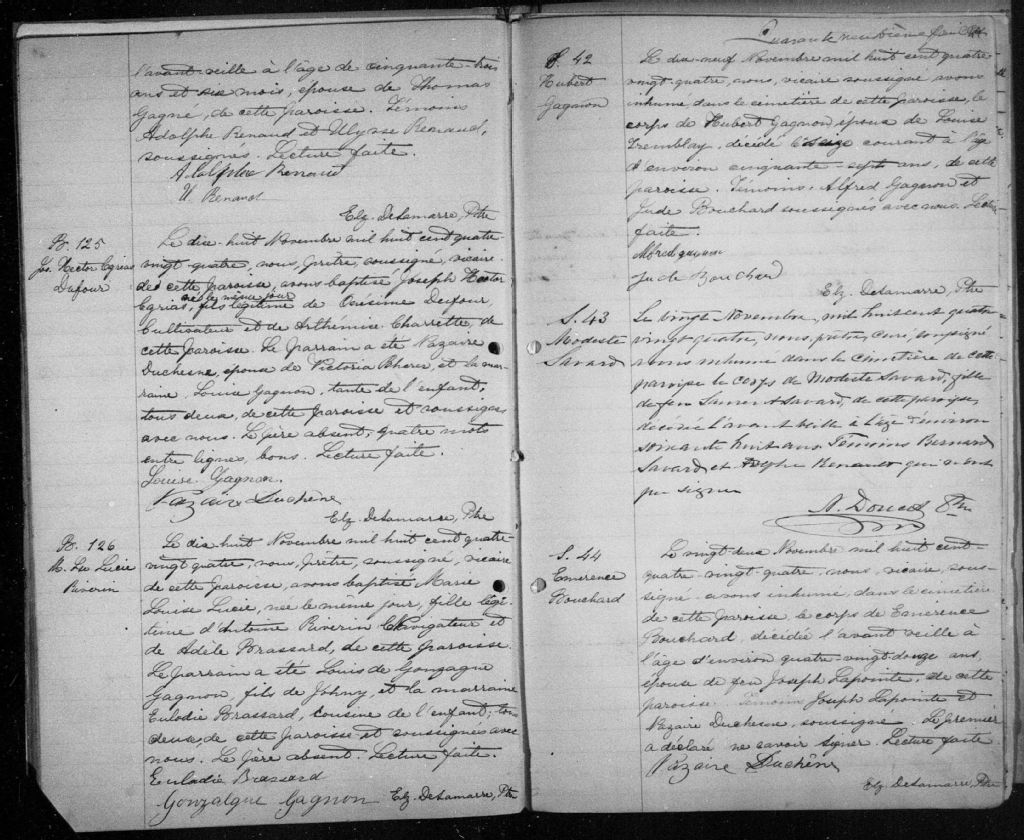 l'avant-veille à l'âge de cinquante-trois
ans et six mois, épouse de Thomas
Gagné, de cette paroisse. Témoins
Adolphe Renaud et Ulysse Renaud,
soussignés. Lecture faite.
Adolphe Renaud
U. Renaud
Elz. DeLamarre, Ptre
B. 125
Jos. Hector Egrias
Dufour
Le dix-huit Novembre mil huit cent quatre-
vingt quatre, nous, prêtre, soussigné, vicaire
de cette paroisse, avons baptisé Joseph Hector
né le même jour
Egrias, fils légitime de Onisime Dufour,
Cultivateur et de Arthémise Charrette, de
cette paroisse. Le parrain a été Nazaire
Duchesne, époux de Victoria, et la mar-
raine, Louise Gagnon, tante de l'enfant,
tous deux, de cette paroisse et soussignés
avec nous. Le père absent, quatre mots
entre lignes, bons. Lecture faite.
Louise Gagnon.
Nazaire Duchêne
Elz. DeLamarre, Ptre
B. 126
M. Lse Lucie
Riverin
Le dix-huit Novembre mil huit cent quatre-
vingt quatre, nous, prêtre, soussigné, vicaire
de cette paroisse, avons baptisé Marie
Louise Lucie, née le même jour, fille légi-
time d'Antoine Riverin Navigateur et
de Adèle Brassard, de cette paroisse.
Le parrain a été Louis de Gonzague
Gagnon, fils de Johny, et la marraine
Eulodie Brassard, cousine de l'enfant, tous
deux, de cette paroisse et soussignés avec
nous. Le père absent. Lecture faite.
Euladie Brassard
Gonzalgue Gagnon Elz. DeLamarre, Ptre
Quarante neuvième feuillet
S. 42
Hubert
Gagnon
Le dix-neuf Novembre mil huit cent quatre
vingt-quatre, nous, vicaire soussigné avons
inhumé dans le cimetière de cette paroisse, le
corps de Hubert Gagnon, époux de Louise
Tremblay, décédé le seize courant à l'âge
d'environ cinquante-sept ans, de cette
paroisse. Témoins, Alfred Gagnon et
Jude Bouchard soussignés avec nous. Lecture
faite.
Alfred gagnon
Jude Bouchard
Elz. DeLamarre, Ptre
S. 43
Modeste
Savard
Le vingt Novembre, mil huit cent quatre-
vingt-quatre, nous, prêtre, curé, soussigné
avons inhumé dans le Cimetière de cette
paroisse le corps de Modeste Savard, fille
de feu Savard, de cette paroisse,
décédée l'avant veille à l'âge d'environ
soixante huit ans. Témoins Bernard
Savard et Adolphe Renault qui n'ont
pu signer
A. Doucet Ptre
S. 44
Emerence
Bouchard
Le vingt-deux Novembre mil huit cent-
quatre-vingt-quatre, nous, vicaire, sous-
signé avons inhumé, dans le cimetière
de cette paroisse, le corps de Emerence
Bouchard, décédée l'avant veille à
l'âge d'environ quatre-vingt-douze ans,
épouse de feu Joseph Lapointe, de cette
paroisse. Témoins Joseph Lapointe et
Nazaire Duchesne, soussigné. Le premier
a déclaré ne savoir signer. Lecture faite.
Nazaire Duchêne
Elz. DeLamarre, Ptre